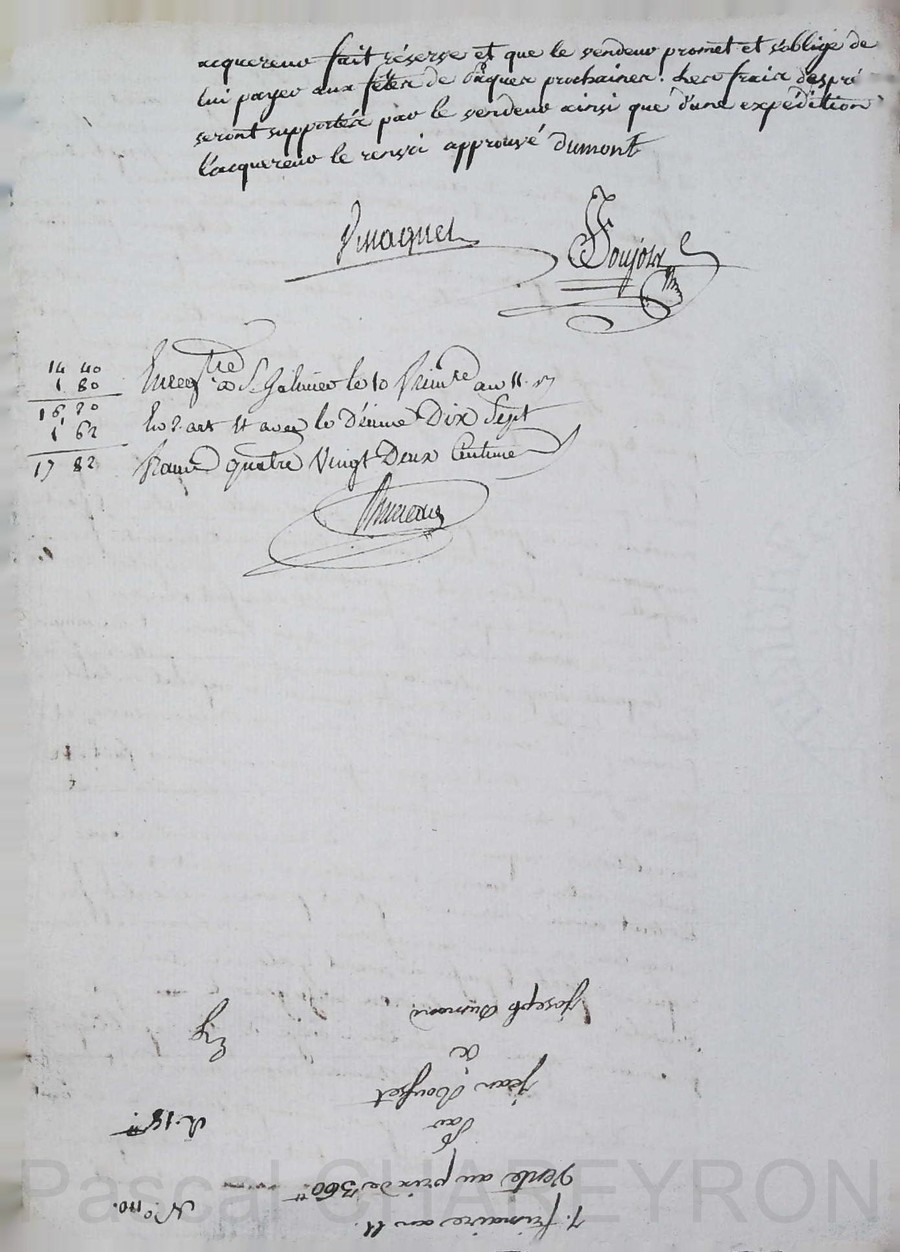 acquereur fait réserve et que le vendeur promet et s'oblige de
lui payer aux fêtes de Pâques prochaines. Les frais des pré
seront supportés par le vendeur ainsi que d'une expédition
l'acquereur le renvoi approuvé Dumont
Goujon
14 40
1 80
16 20
1 62
17 82
Enregtré a St Galmier le 10 frimre an 11
avec le Décime Dix Sept
francs quatre Vingt Deux Centimes
7. frimaire an 11. N.° 110.
Vente au prix de 360tt
Par
Jean R. 15tt
a
Joseph Dumont
Pascal CHAREYRON